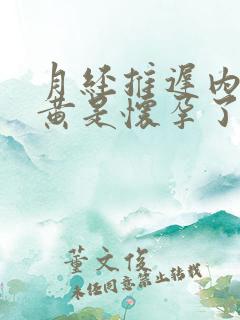 月经推迟内
黄是怀孕了
董文俊
未经同意禁止转载